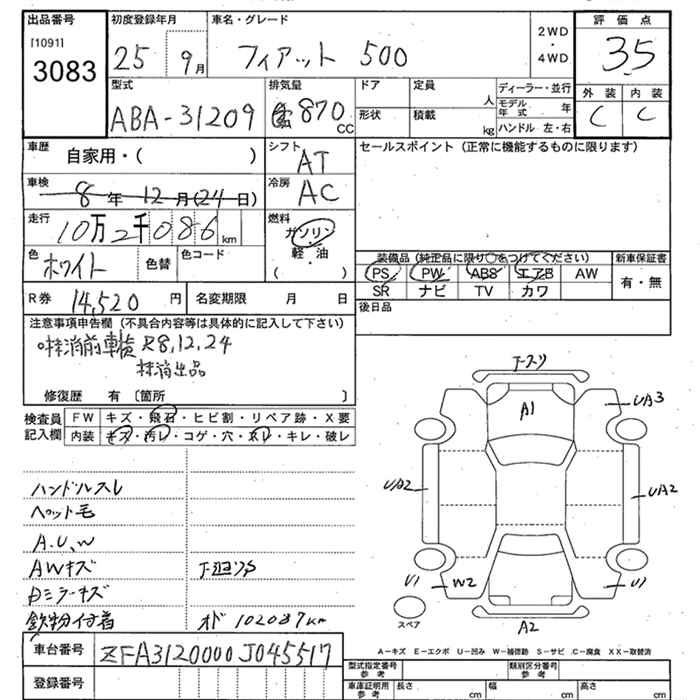 出品番号
[1091]
3083
初度登録年月
25 9月
車名・グレード
フィアット 500
2WD
・
4WD
評価点
3.5
型式
ABA-31209
排気量
870 CC
ドア
形状
定員
人
積載
kg
ディーラー・並行
モデル年式 年
ハンドル 左・右
外装 内装
C C
車歴
自家用・( )
シフト
AT
セールスポイント (正常に機能するものに限ります)
車検
8年 12月(24日)
冷房
AC
走行
10万2千086 km
燃料
ガソリン
軽・油
( )
色
ホワイト
色替
色コード
装備品 (純正品に限り○をつけてください)
新車保証書
PS PW ABS エアB AW
有・無
SR ナビ TV カワ
R券 14,520 円
名変期限 月 日
後日品
注意事項申告欄 (不具合内容等は具体的に記入して下さい)
抹消前車検 R8,12,24
抹消出品
修復歴 有 〔箇所 〕
検査員記入欄
FW キズ・飛石・ヒビ割・リペア跡・X要
内装 キズ・汚レ・コゲ・穴・スレ・キレ・破レ
ハンドルスレ
ペット毛
A.U.W
AWキズ
ドミラーキズ
鉄粉付着
オド 102087km
A1
UA3
UA2
UA2
U1
W2
U1
A2
スペア
A－キズ E－エクボ U－凹み W－補修跡 S－サビ C－腐食 XX－取替済
車台番号 ZFA3120000J045517
登録番号
型式指定番号 参考
類別区分番号 参考
車庫証明用 参考
長さ cm
幅 cm
高さ cm